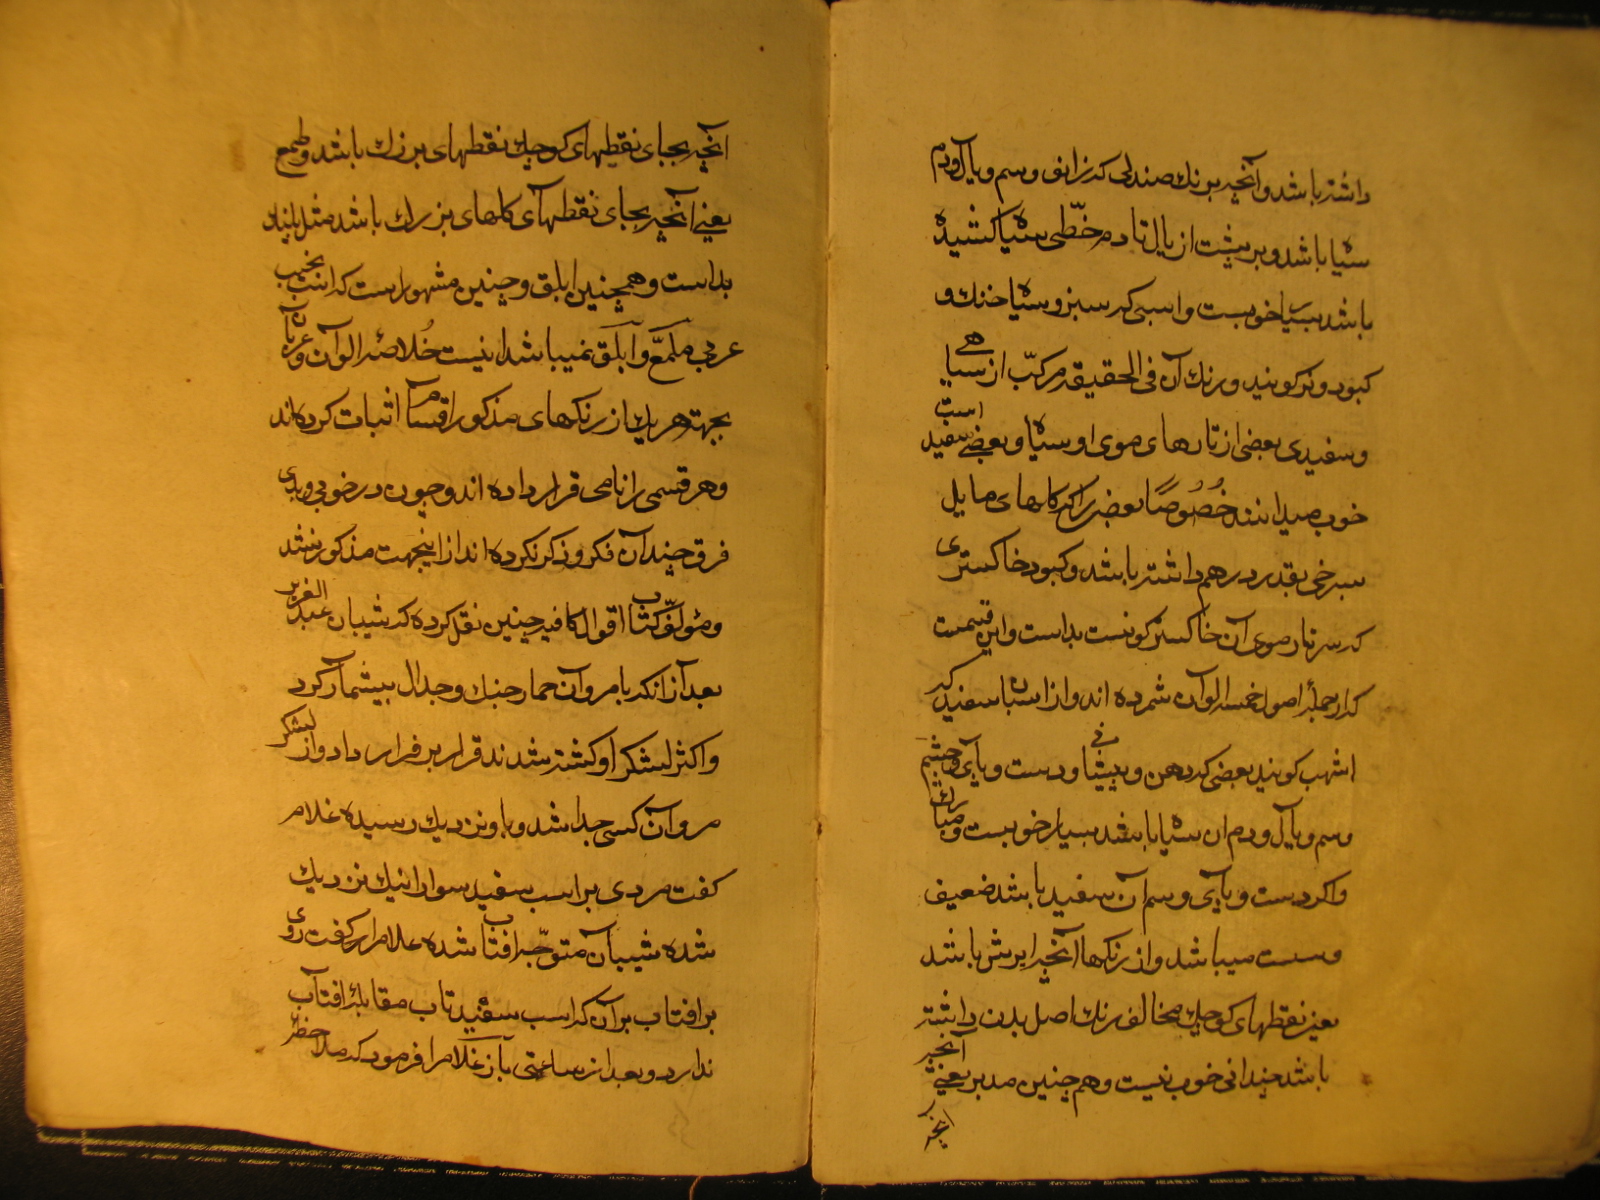 داشته باشد و آنچه برنك صندلی که زانو و سم و یال و دم
سیاه باشد و بر پشت از یال تا دم خطّی سیاه کشیده
باشد بسیار خوبست و اسبی که سبز و سیاه خنك و
کبود و نر کویند و رنك آن فی الحقیقه مرکّب از سیاهی
و سفیدی بعضی از تارهای موی او سیاه و بعضی سفید است
خوب میدانند خُصُوصًا بعضی را که کلهای مایل
بسرخی بقدر درهم داشته باشد و کبود خاکستری
که سر تار موی آن خاکستر کونست بد است و این قسمت
که از جملهٔ اصول خمسه الوان شمرده اند و از اسبان سفید که
اشهب کویند بعضی که دهن و پیشانی و دست و پای و چشم
و سم و یال و دم ان سیاه باشد بسیار خوبست و مبارك
و اکر دست و پای و سم آن سفید باشد ضعیف
و سست میباشد و از رنکها آنچه ابرش باشد
یعنی نقطهای کوچك مخالف رنك اصل بدن داشته
باشد چندانی خوب نیست و هم چنین مدبر یعنی آنچه
آنچه بجای نقطهای کوچك نقطهای بزرك باشد و ملمع
یعنی آنچه بجای نقطهای کلهای بزرك باشد مثل پلنك
بد است و همچنین ابلق و چنین مشهور است که اسب نجیب
عربی ملمّع و ابلق نمیباشد اینست خُلاصهٔ الوان و عربان
بجهته هر یك از رنکهای مذکور اقسام اثبات کرده اند
و هر قسمی را نامی قرار داده اند و چون در خوبی و بدی
فرق چندان نکرو ذکر نکرده اند از اینجهت مذکور نشد
و مؤلّف کتاب اقوال کافیه چنین نقل کرده که شیبان عبد العزیز
بعد از انکه با مروان حمار جنك و جدال بیشمار کرد
و اکثر لشکر او کشته شدند قرار بر فرار داد و از لشکر
مروان کسی جدا شد و باو نزدیك رسیده غلام
کفت مردی بر اسب سفید سوار اینك نزدیك
شده شیبان متوجّه افتاب شده غلام را کفت روی
بر افتاب بران که اسب سفید تاب مقابلهٔ افتاب
ندارد و بعد از ساعتی باز غلام را فرمود که ملاحظه